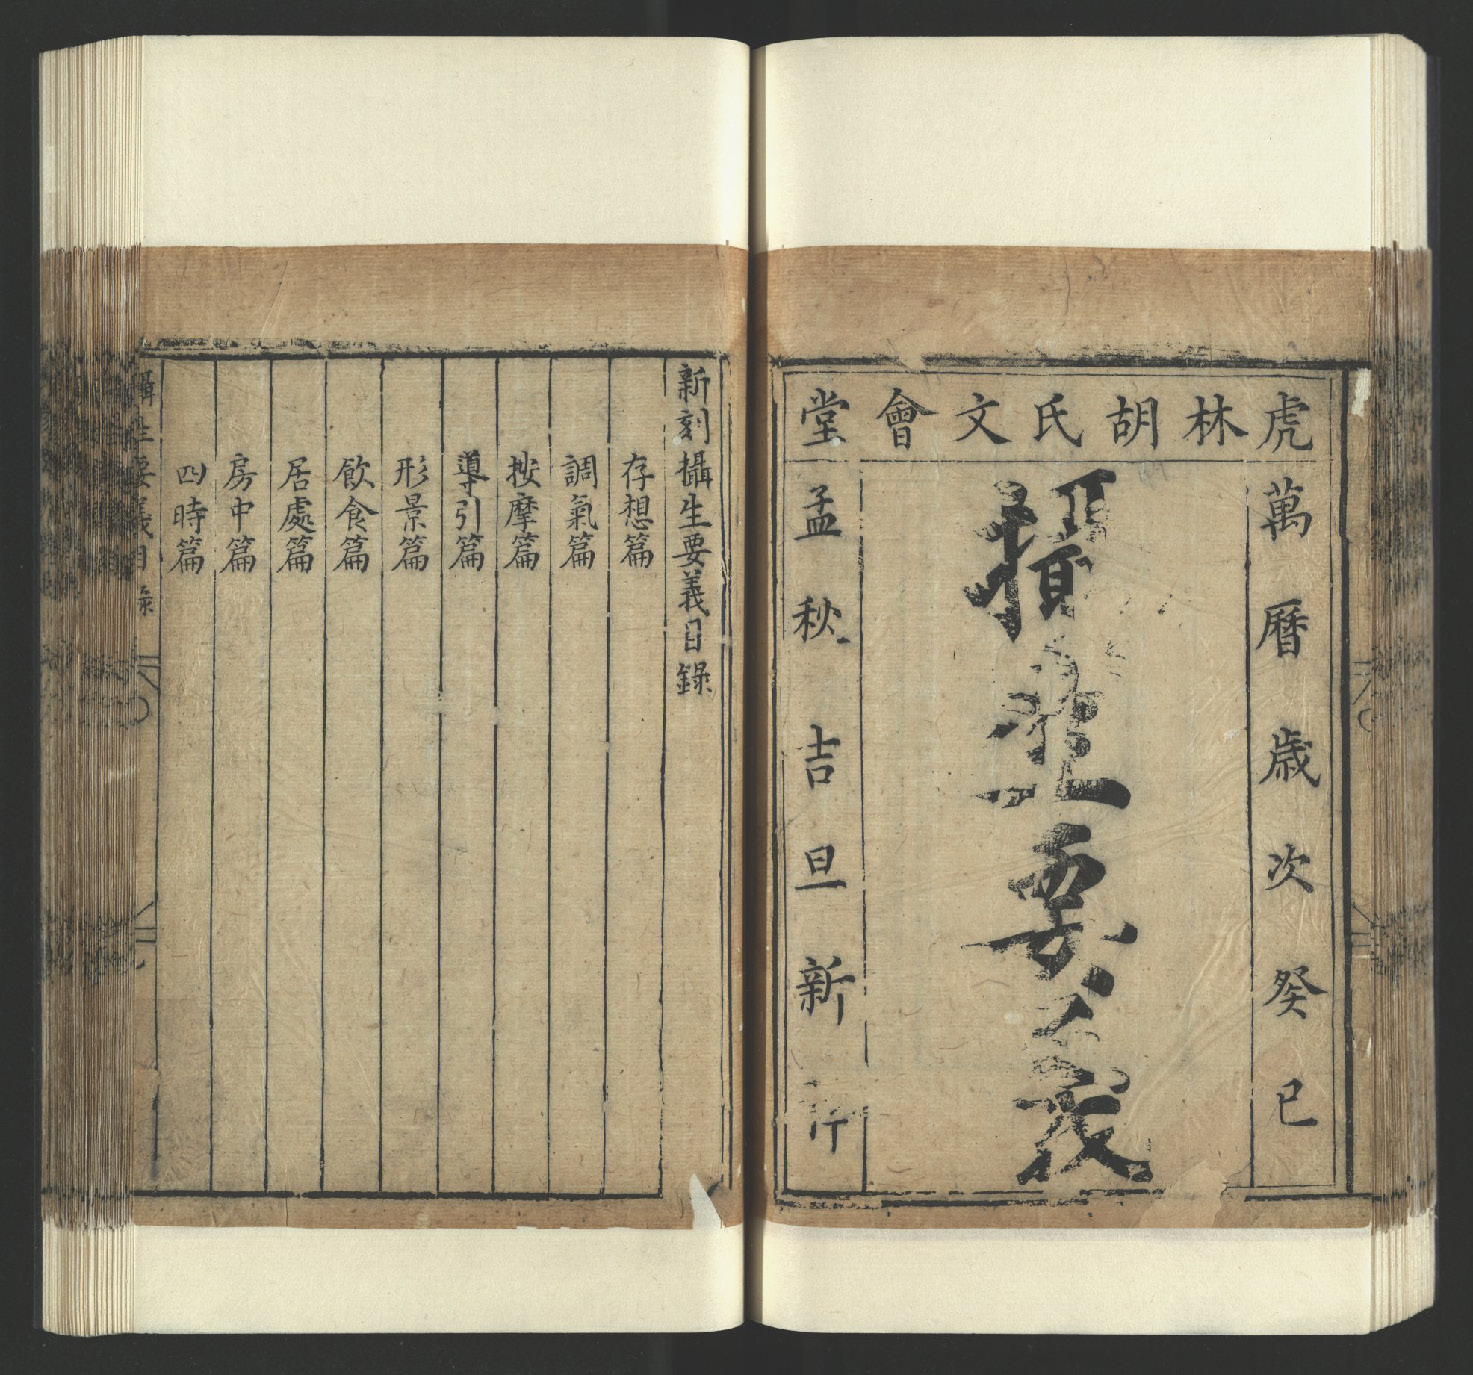 虎林胡氏文會堂
萬曆歲次癸巳
攝生要義
孟秋吉旦新
新刻攝生要義目錄
存想篇
調氣篇
按摩篇
導引篇
形景篇
飲食篇
居處篇
房中篇
四時篇
攝生要義目錄